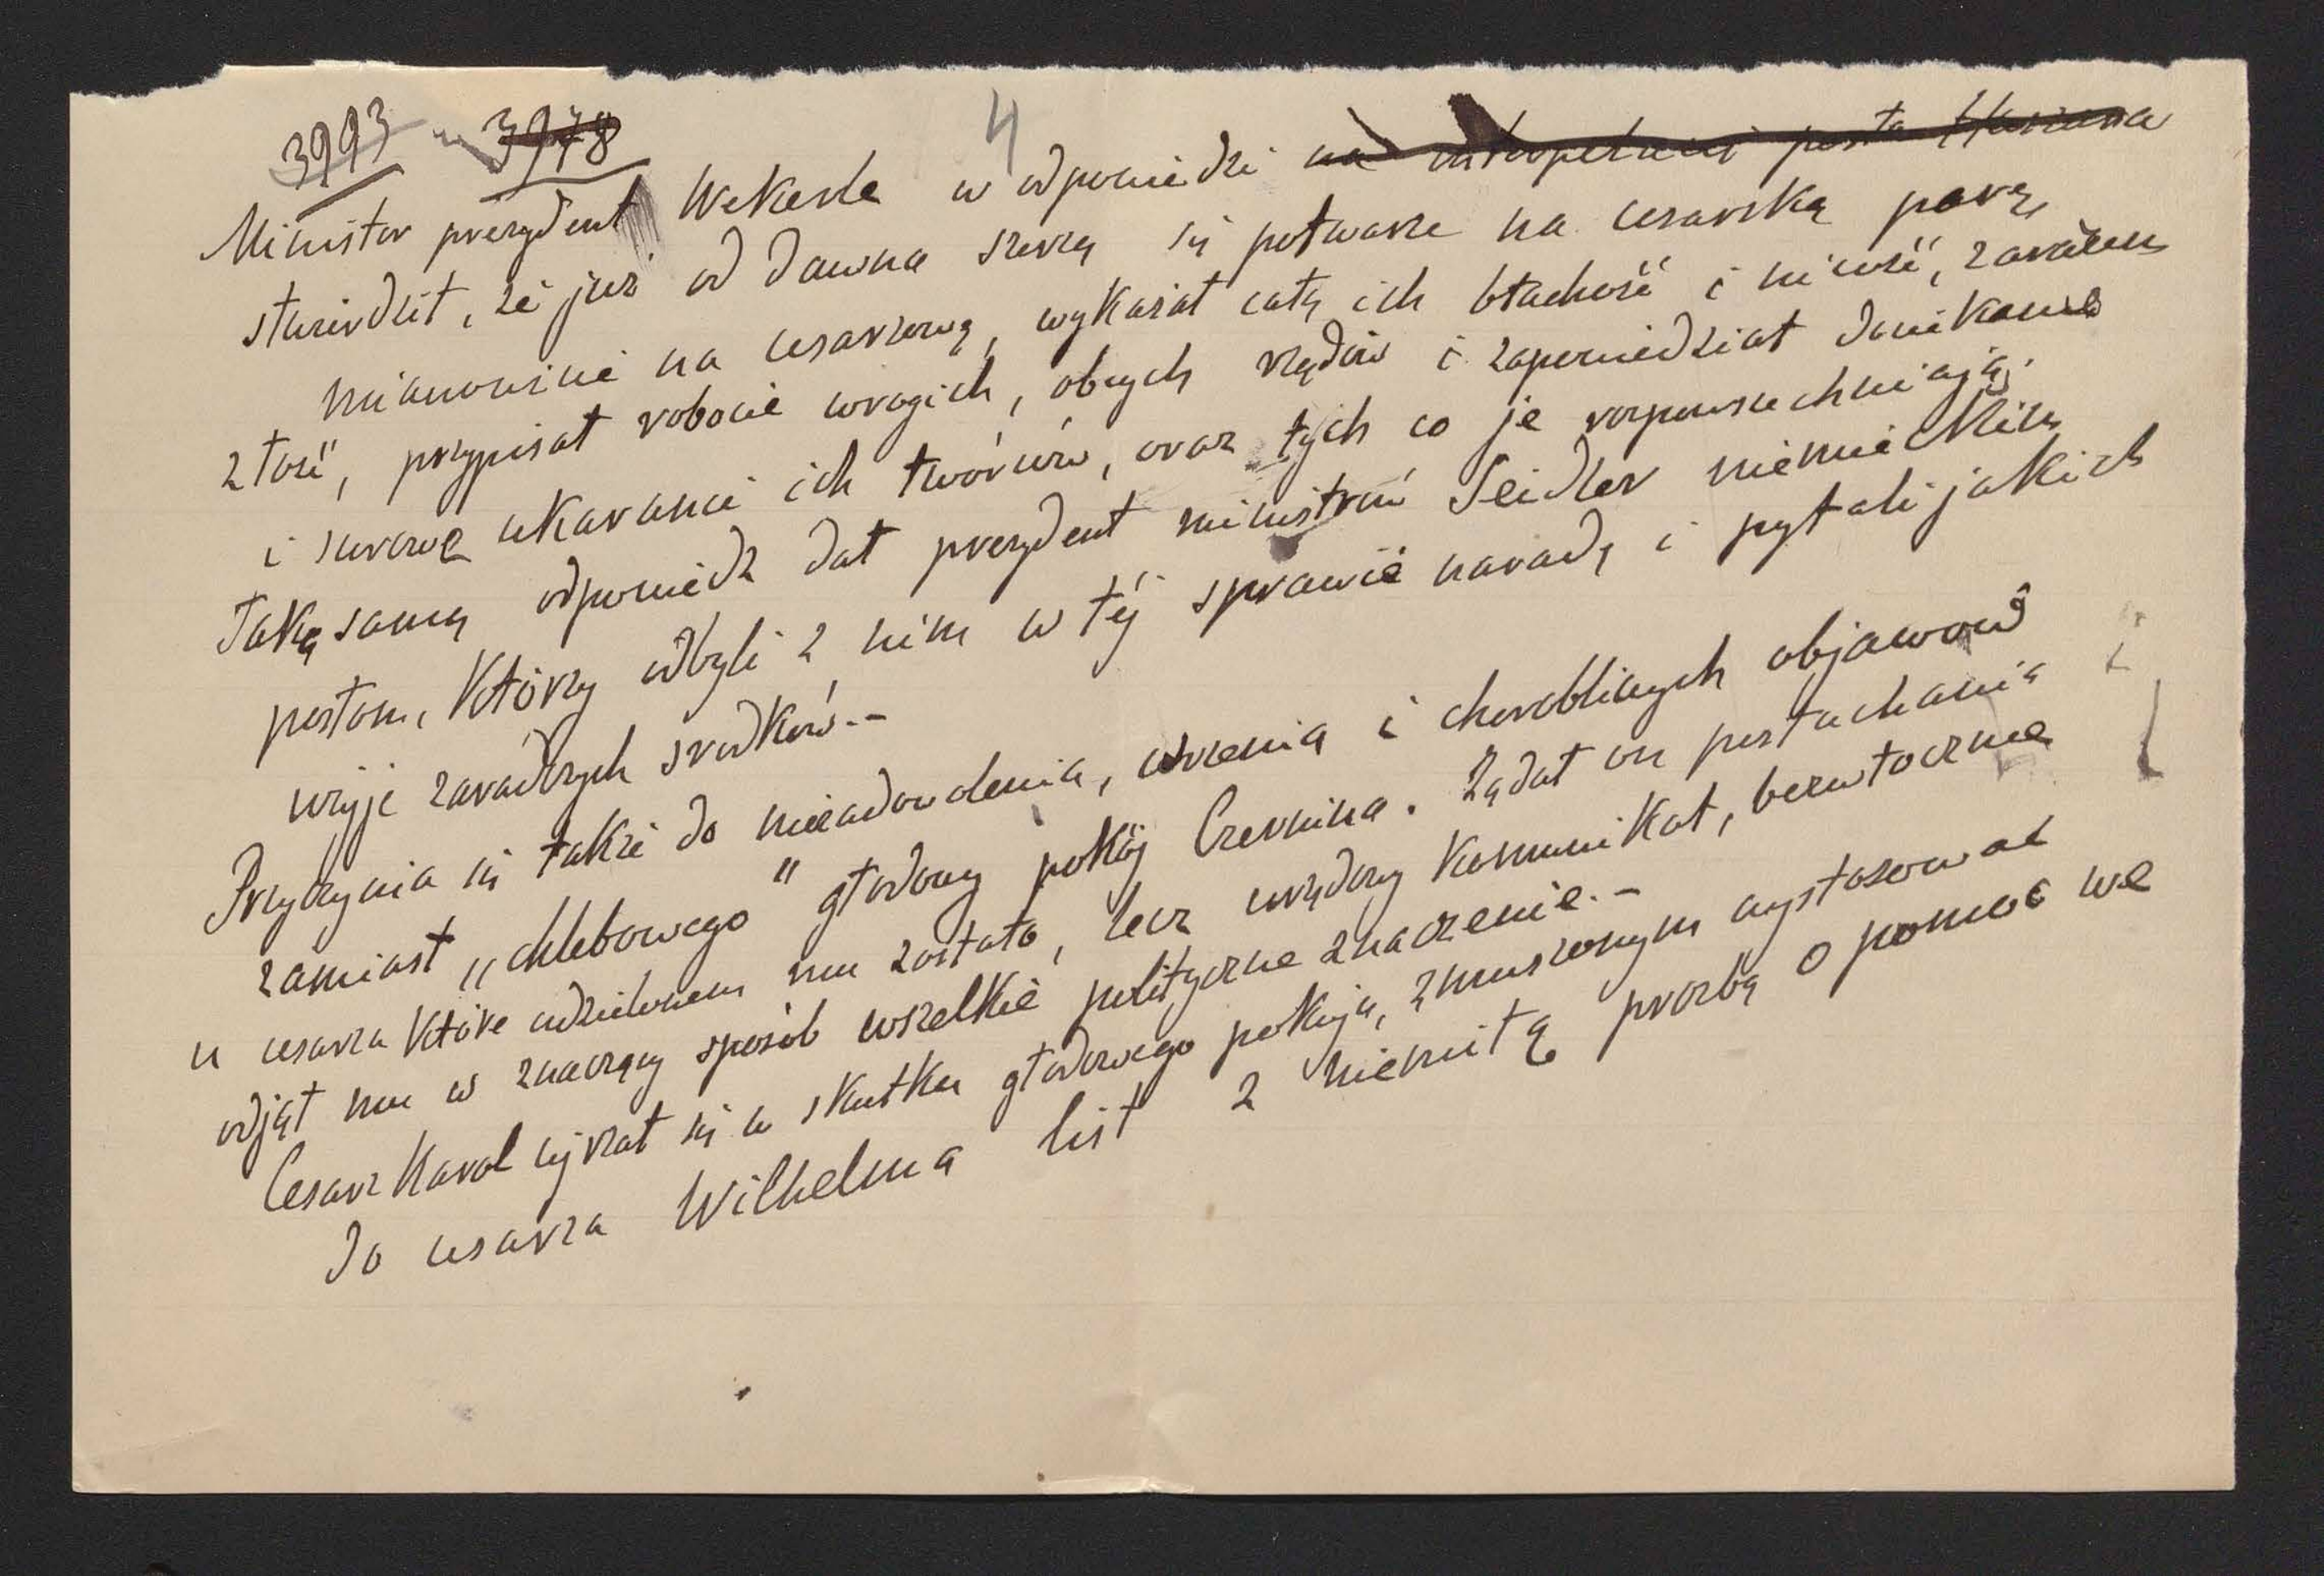 3993 3978
4
Minister prezydent Wekerle w odpowiedzi na interpelacii posła
stwierdził, że już od dawna szerzą się potwarze na cesarską parę,
mianowicie na cesarzową, wykazał całą ich błachość i nicość, zarazem
złość, przypisał robocie wrogich, obcych rządów i zapowiedział dociekanie
i surowe ukaranie ich twórców, oraz tych co je rozpowszechniają.
Taką samą odpowiedź dał prezydent ministrów Seidler niemieckim
posłom, którzy odbyli z nim w téj sprawie naradę i pytali jakich
użyje zaradczych środków.-
Przyczynia się także do niezadowolenia, wrzenia i chorobliwych objawów
zamiast "chlebowego" głodowy pokój Czernina. Żądał on posłuchania
u cesarza które udzielonem mu zostało, lecz urzędowy komunikat, bezwłocznie
odjął mu w znaczący sposób wszelkie polityczne znaczenie.-
Cesarz Karol ujrzał się w skutku głodowego pokoju, zmuszonym wystosować
do cesarza Wilhelma list z niemiłą prozbą o pomoc we